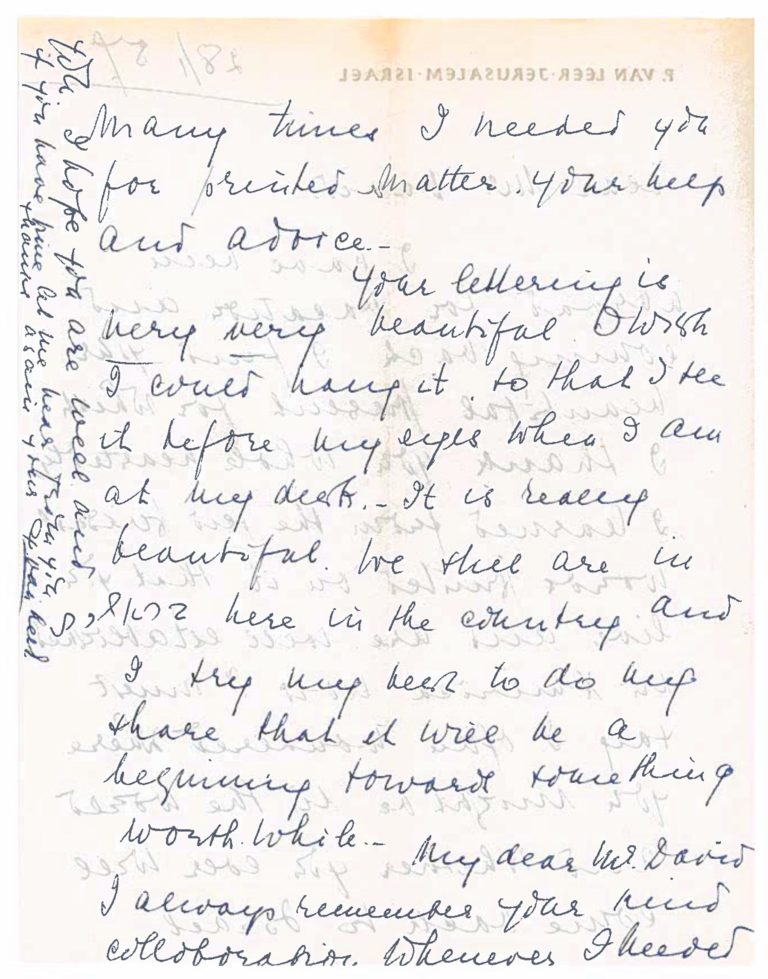 P. VAN LEER · JERUSALEM · ISRAEL
Many times I needed you
for printed matter. your help
and advice.-
Your lettering is
very very beautiful I wish
I could hang it so that I see
it before my eyes when I am
at my desk.- It is really
beautiful. We still are in
here in the country and
I try my best to do my
share that it will be a
beginning towards something
worth while.-
My dear Mr. David
I always remember your kind
colloboration. Whenever I needed
you I hope you are well and
if you have time let me hear from you
thanks again yours P van Leer